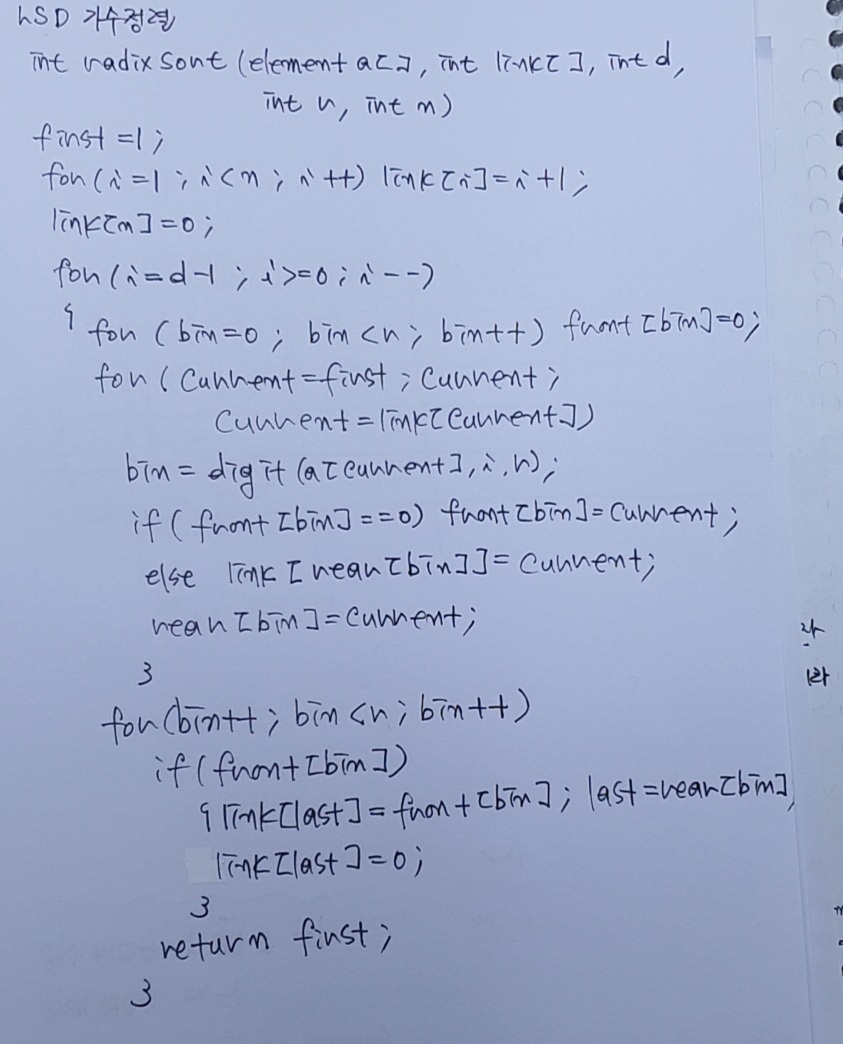 LSD 기수정렬
int radixSort (element a[], int link[], int d,
int r, int n)
first =1;
for(i=1; i<n; i++) link[i]=i+1;
link[n]=0;
for(i=d-1; i>=0; i--)
{ for (bin=0; bin<r; bin++) front[bin]=0;
for (current=first; current;
current=link[current])
bin = digit(a[current], i, r);
if (front[bin]==0) front[bin]=current;
else link[rear[bin]]=current;
rear[bin]=current;
}
for(bin++; bin<r; bin++)
if(front[bin])
{link[last]=front[bin]; last=rear[bin]
link[last]=0;
}
return first;
}